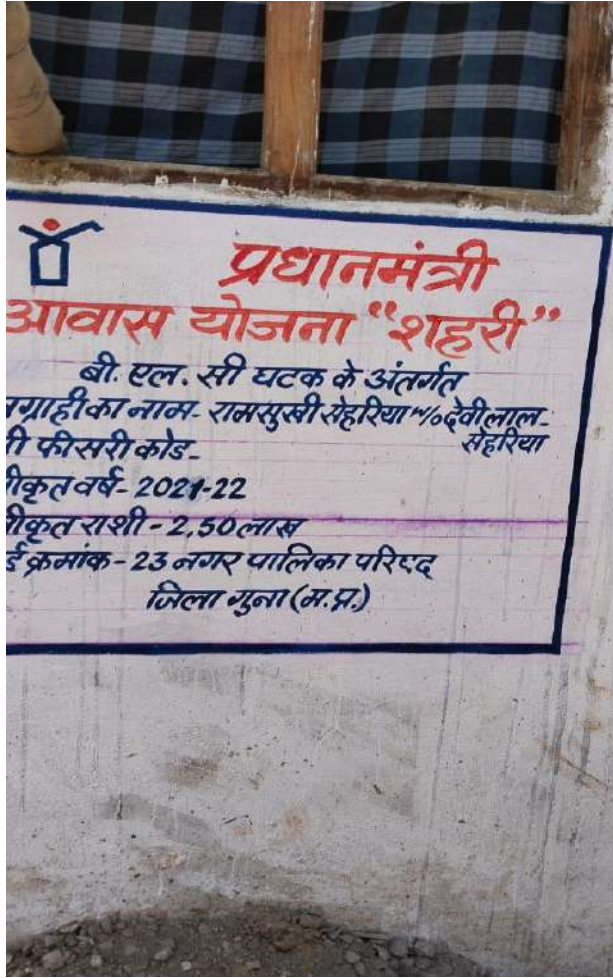 प्रधानमंत्री
आवास योजना “शहरी”
बी. एल. सी घटक के अंतर्गत
भग्राही का नाम- रामसुखी सेहरिया w/o देवीलाल-
सेहरिया
फीसरी कोड-
वर्ष- 2021-22
राशी - 2,50 लाख
क्रमांक - 23 नगर पालिका परिषद
जिला गुना (म.प्र.)